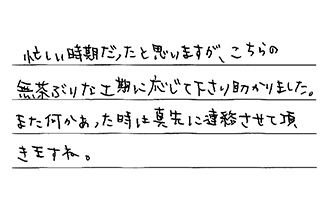 忙しい時期だったと思いますが、こちらの
無茶ぶりな工期に応じて下さり助かりました。
また何かあった時は真先に連絡させて頂
きますね。